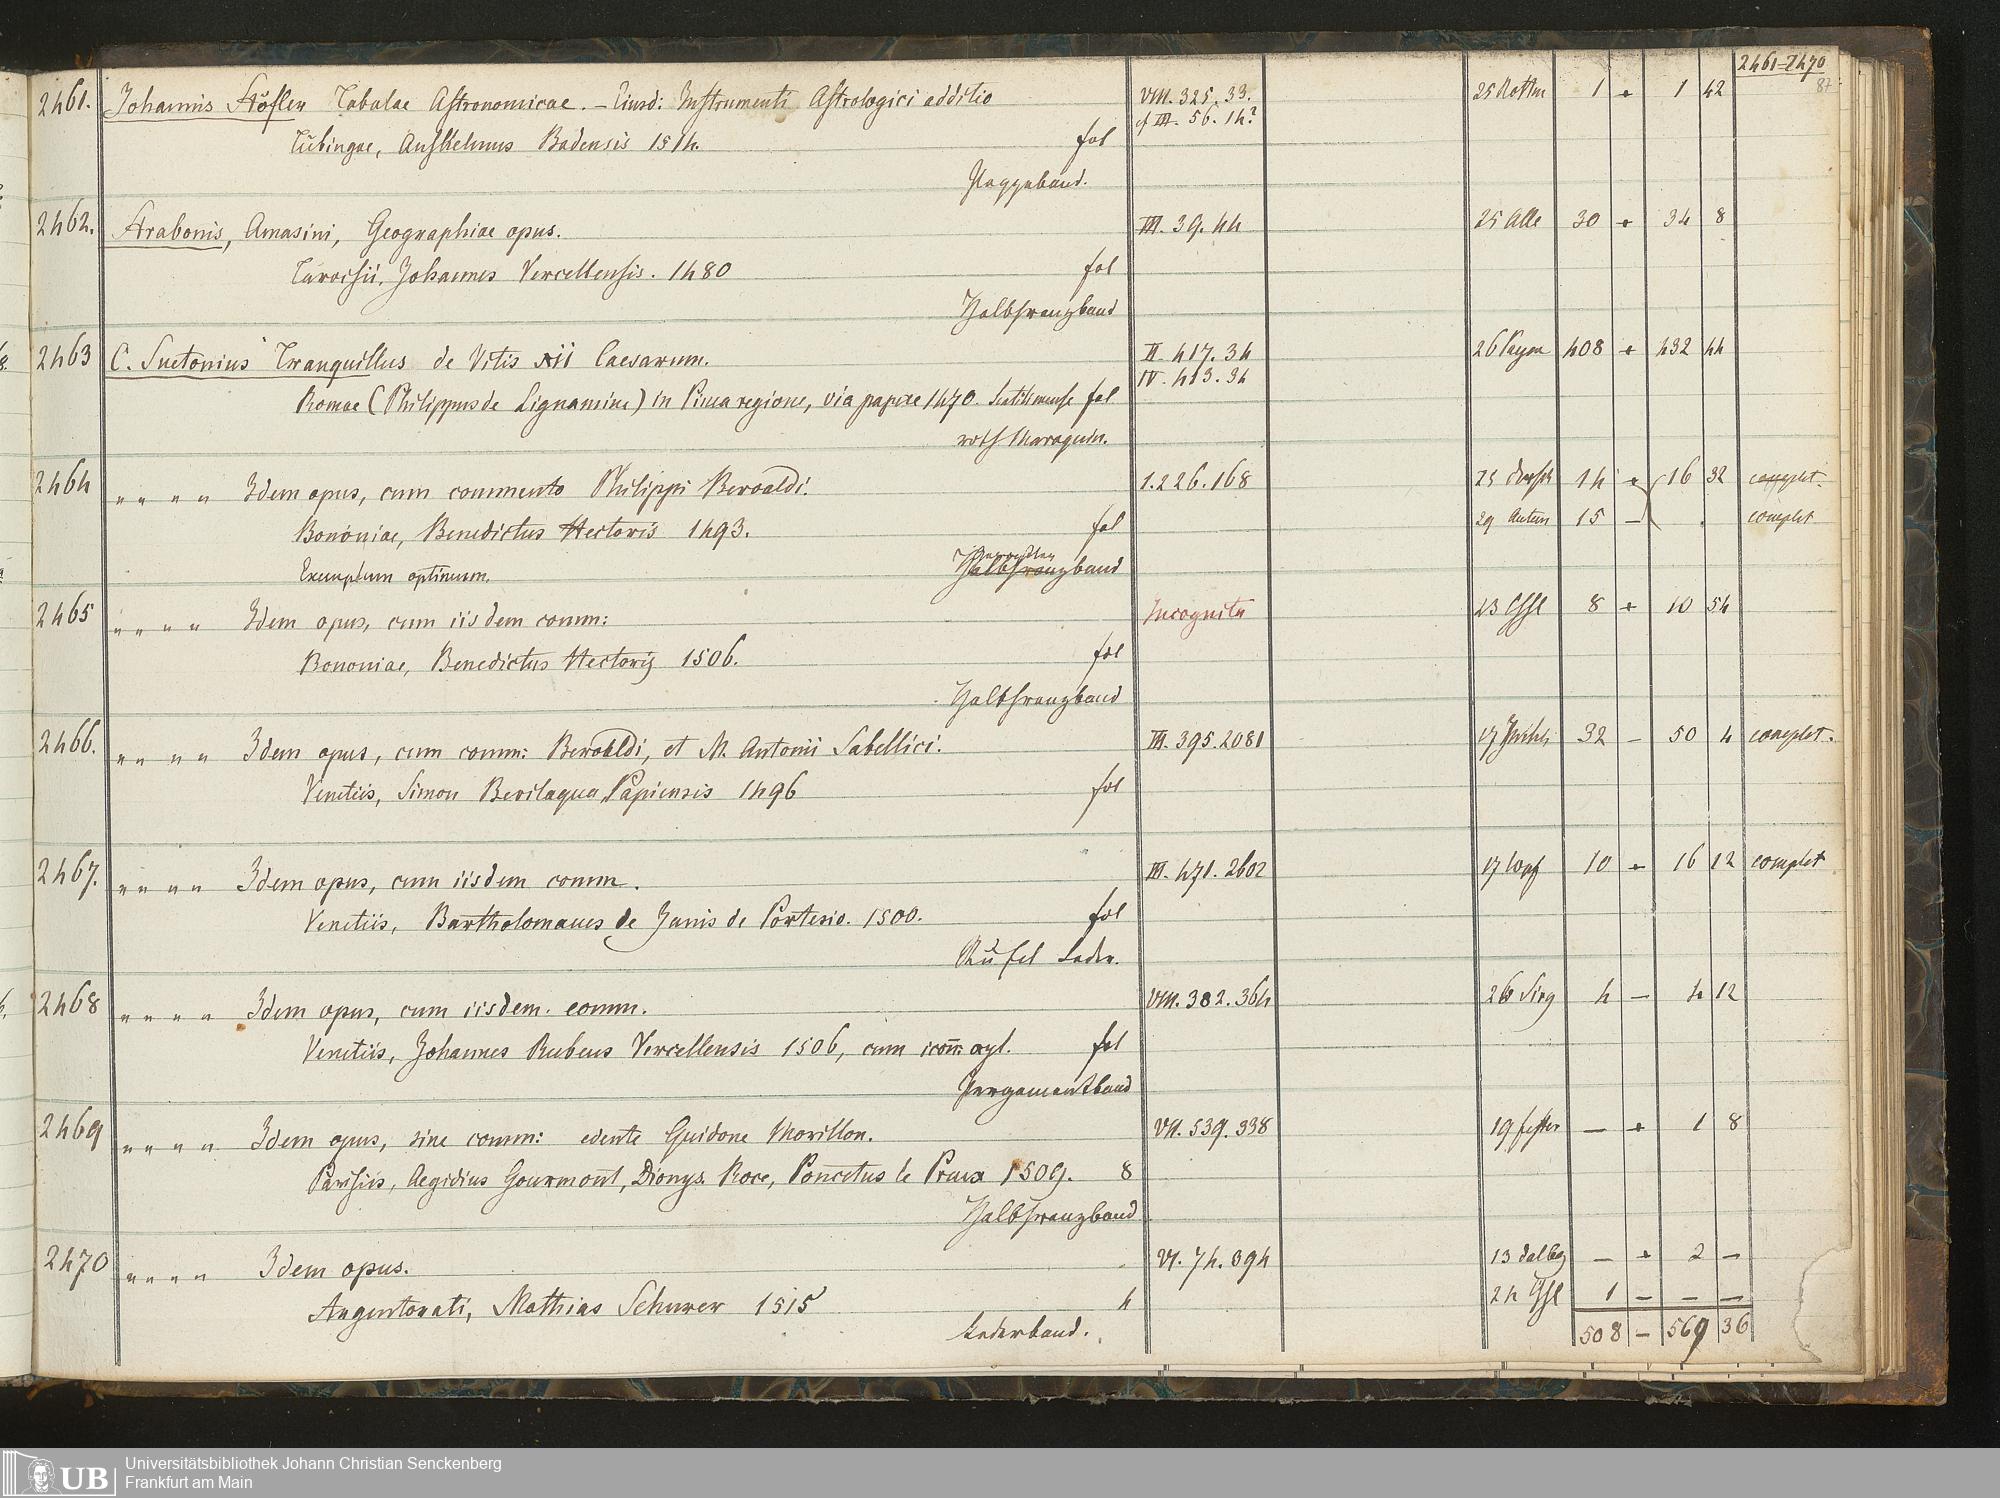 2461-2470
87
2461. Johannis Stöfler Tabulae Astronomicae. – Eiusd: Instrumenti Astrologici additio VIII. 325. 33. 1 + 1 42
cf III. 56. 14?
Tübingae, Anshelmus Badensis 1514. fol
Pappband.
2462. Strabonis, Amasini, Geographiae opus. III. 39. 44 25 Alle 30 + 34 8
Tarvisii, Johannes Vercellensis. 1480 fol
Halbfranzband
2463 C. Suetonius Tranquillus de Vitis xii Caesarum. II. 417. 34 26 Payne 408 + 432 44
IV. 413. 34
Romae (Philippus de Lignamine) in Pinea regione, via papae 1470. fol
roth Maroquin.
2464 " " " " Idem opus, cum commento Philippi Beroaldi. 1. 226. 168 14 + 16 32 complet.
Bononiae, Benedictus Hectoris 1493. fol 15 – complet
Exemplum optimum. Halbfranzband
2465 " " " " Idem opus, cum iisdem comm: Incognita 8 + 10 54
Bononiae, Benedictus Hectoris 1506. fol
Halbfranzband
2466. " " " " Idem opus, cum comm: Beroaldi, et M. Antonii Sabellici. III. 395. 2081 32 – 50 4 complet.
Venetiis, Simon Bevilaqua Papiensis 1496 fol
2467. " " " " Idem opus, cum iisdem comm. III. 471. 2602 10 + 16 12 complet
Venetiis, Bartholomaeus de Zanis de Portesio. 1500. fol
Leder.
2468 " " " " Idem opus, cum iisdem. comm. VIII. 382. 364 4 – 4 12
Venetiis, Johannes Rubeus Vercellensis 1506, cum icon: xyl. fol
Pergamentband
2469 " " " " Idem opus, sine comm: edente Guidone Morillon. VII. 539. 338 – + 1 8
Parisiis, Aegidius Gourmont, Dionys. Roce, Poncetus le Preux 1509. 8
Halbfranzband
2470 " " " " Idem opus. VI. 74. 394 13 Dalbg – + 2 –
Argentorati, Mathias Schurer 1515 4 1 – – –
Lederband. 508 – 569 36
UB Universitätsbibliothek Johann Christian Senckenberg
Frankfurt am Main